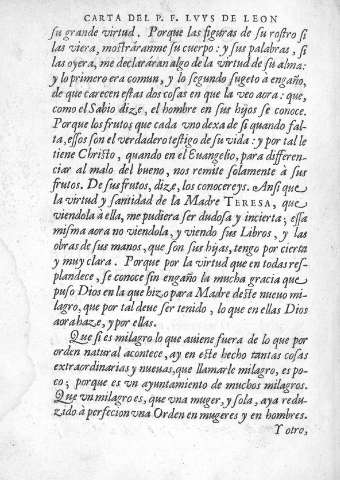 CARTA DEL P. F. LVYS DE LEON
su grande virtud. Porque las figuras de su rostro si
las viera, mostráranme su cuerpo: y sus palabras, si
las oyera, me declararan algo de la virtud de su alma:
y lo primero era comun, y lo segundo sugeto à engaño,
de que carecen estas dos cosas en que la veo aora: que,
como el Sabio dize, el hombre en sus hijos se conoce.
Porque los frutos que cada vno dexa de si quando fal-
ta, essos son el verdadero testigo de su vida: y por tal le
tiene Christo, quando en el Euangelio, para differen-
ciar al malo del bueno, nos remite solamente à sus
frutos. De sus frutos, dize, los conocereys. Ansi que
la virtud y santidad de la Madre TERESA, que
viendola à ella, me pudiera ser dudosa y incierta; essa
misma aora no viendola, y viendo sus Libros, y las
obras de sus manos, que son sus hijas, tengo por cierta
y muy clara. Porque por la virtud que en todas res-
plandece, se conoce sin engaño la mucha gracia que
puso Dios en la que hizo para Madre deste nueuo mi-
lagro, que por tal deue ser tenido, lo que en ellas Dios
aora haze, y por ellas.
Que si es milagro lo que auiene fuera de lo que por
orden natural acontece, ay en este hecho tantas cosas
extraordinarias y nueuas, que llamarle milagro, es po-
co; porque es vn ayuntamiento de muchos milagros.
Que vn milagro es, que vna muger, y sola, aya redu-
zido à perfecion vna Orden en mugeres y en hombres.
Y otro,